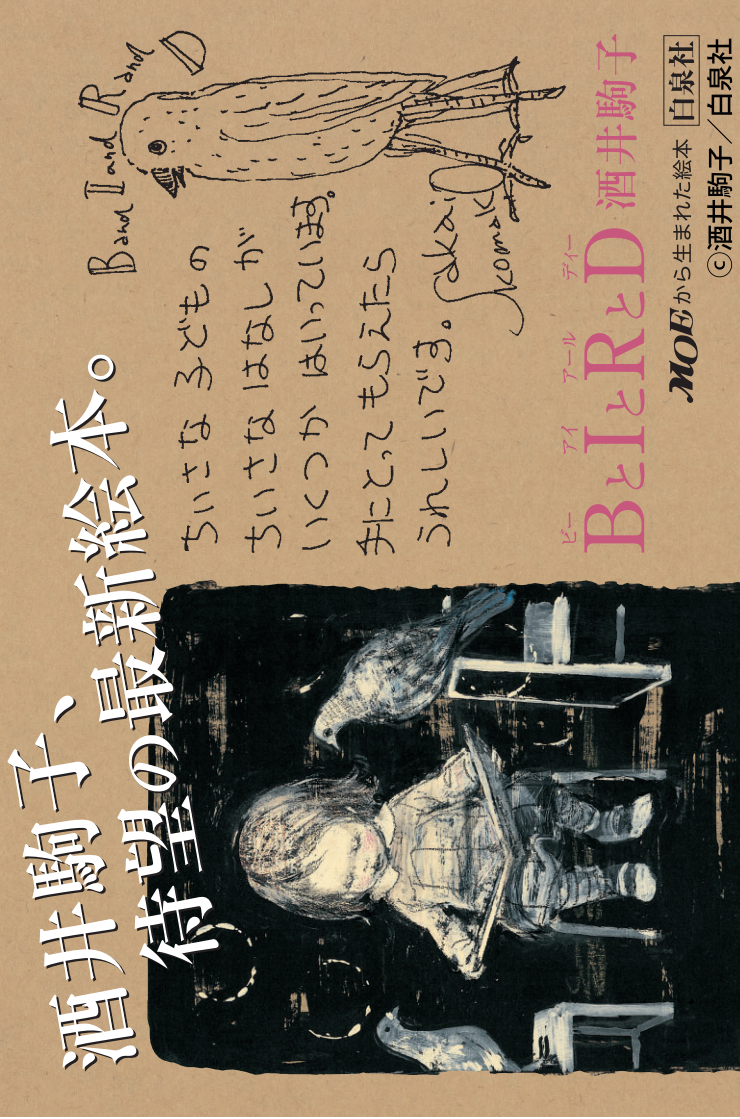 酒井駒子、
待望の最新絵本。
B and I and R and D
ちいさな 子どもの
ちいさな はなしが
いくつか はいっています。
手にとって もらえたら
うれしいです。
Sakai
Komako
ビー アイ アール ディー
BとIとRとD 酒井駒子
MOEから生まれた絵本 白泉社
©酒井駒子／白泉社